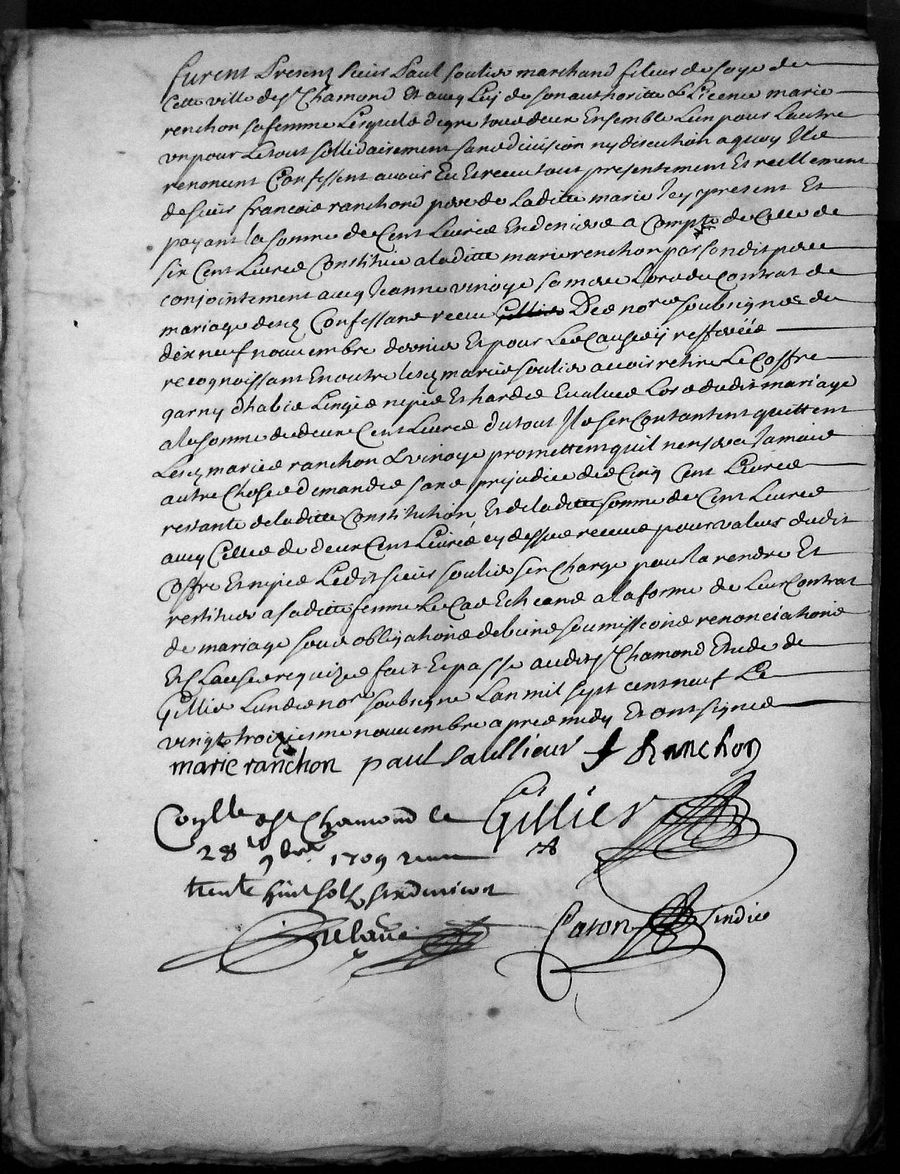 furent presens sieur paul soulier marchand fileur de soye de
cette ville de st Chamond Et avec luy de son authoritte & Licence marie
renchon sa femme Lesquels de gre tous deux Ensemble L'un pour L'autre
un pour Le tout sollidairement sans division ny discution a quoy Ils
renoncent Confessent avoir Eu & receu tout presentement Et reellement
de sieur francois ranchond pere de Laditte marie Icy present Et
payant la somme de Cent Livres En deniers a Compte de Celle de
six Cent Livres Constituee a laditte marie renchon par sondit pere
conjointement avec Jeanne vinoys sa mere Lors du Contrat de
mariage desd Confessans receu Gillier des nore soubsignes du
dix neuf novembre dernier Et pour Les Causes y refferées
recognoissant En outre lesd maries soulier avoir retire Le Coffre
garny d'habis Linges nipes Et hardes Evalues Lors dudit mariage
a la somme de deux Cent Livres du tout Ils se Contantent quittent
Lesd maries ranchon & vinoys promettent qu'il n'en sera Jamais
autre Chose demandes sans prejudice des Cinq Cent Livres
restants de laditte Constitution Et de laditte somme de Cent Livres
avec Celles de deux Cent Livres cy dessus receues pour valeur dudit
Coffre Et nipes Ledit sieur soulier se Charge pour la rendre Et
restituer a saditte femme Le Cas Echeant a la forme de Leur Contrat
de mariage sous obligations de biens soumissions renonciations
Et Clauses requizes fait Et passe audit st Chamond Etude de
Gillier L'un des nors soubsigne L'an mil sept cent neuf Le
vingt troiziesme novembre apres midy Et ont signes
marie ranchon paul Saullieur f Ranchon
Conlle a st Chamond le
Gillier
28e 9bre 1709 receu
trente huit solz six deniers
Caron sindic